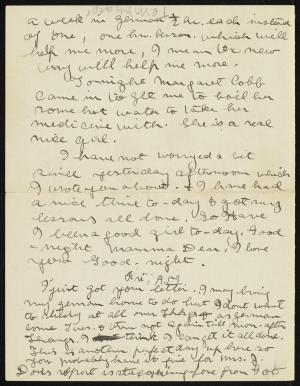 a week in German ½ hr. each instead
of one, one hr. lesson. which will
help me more, I mean the new
way will help me more.
To-night Margaret Cobb
came in to get me to boil her
some hot water to take her
medicine with. She is a real
nice girl.
I have not worryed a bit
since yesterday afternoon which
I wrote you about. I have had
a nice time to-day & got my
lessons all done. So Have
I been a good girl to-day. Good-
night Mamma Dear, I love
you Good-night.
Fri.
I just got your letter. I may bring
my german home to do but I dont want
to study at all our as german
come Tues. & then not again till mon. after
I think I can get it all done.
This is another perfect day up here so
you probably have it fine for mrs. J.
Does